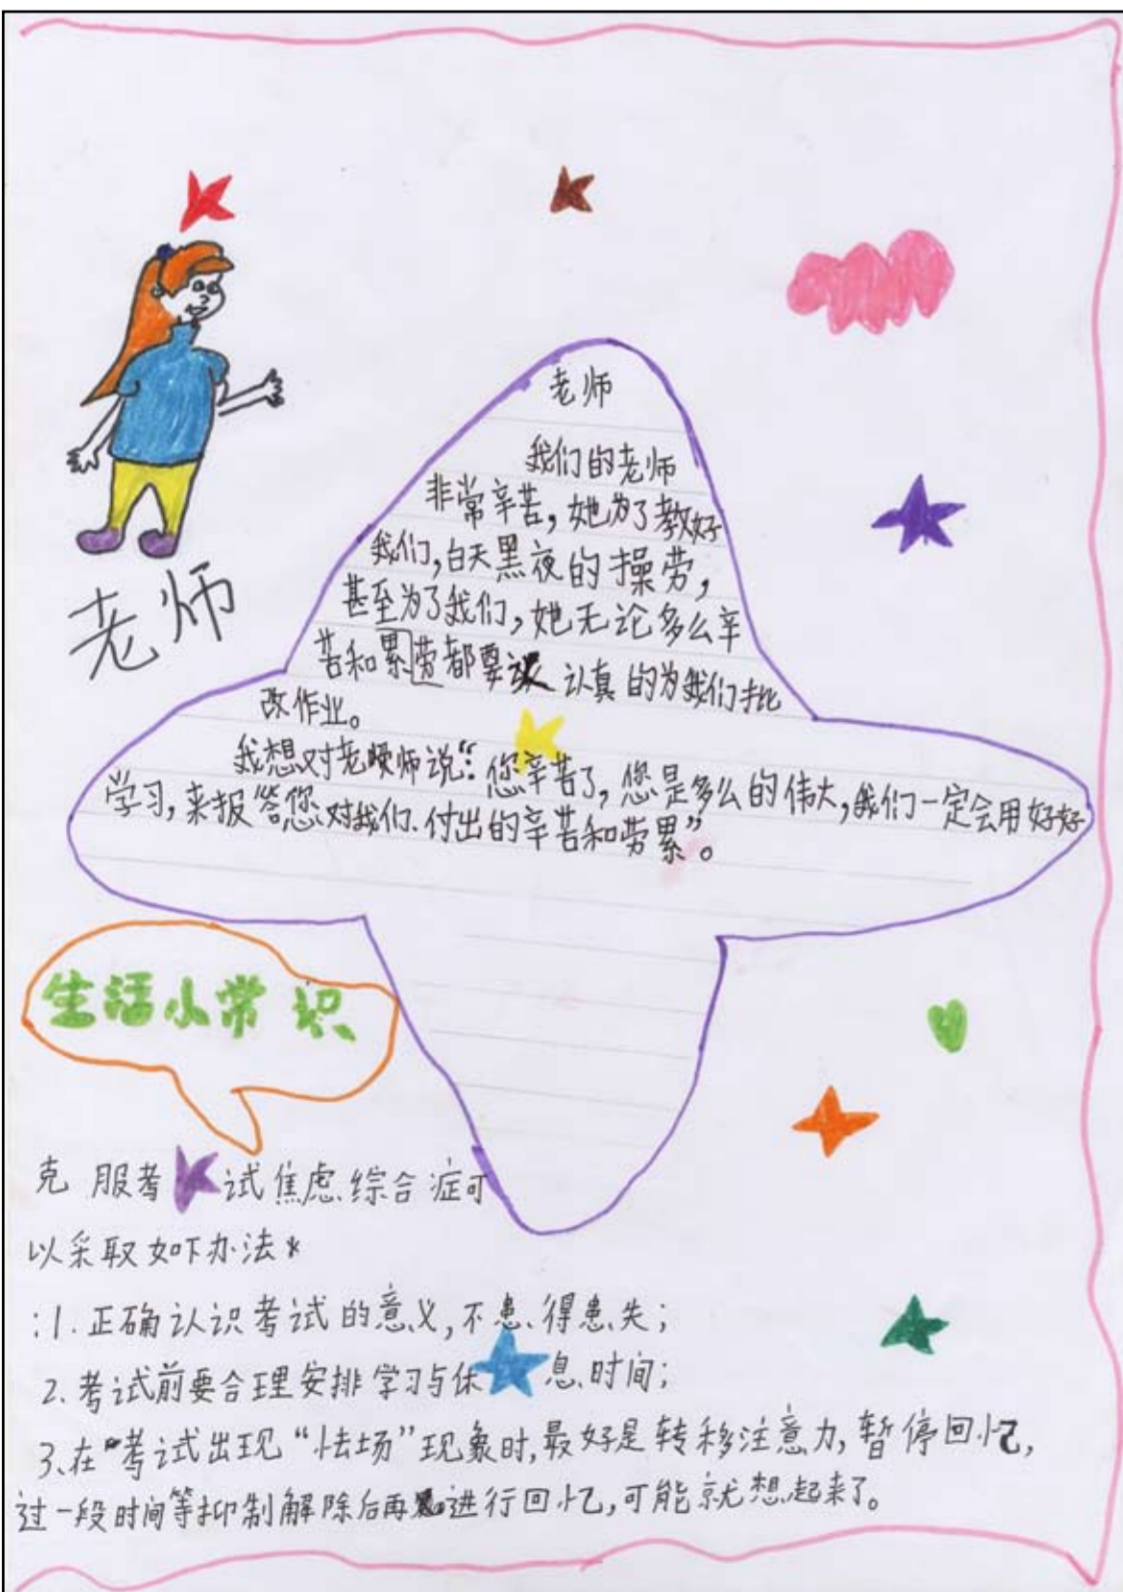 老师
老师
我们的老师
非常辛苦，她为了教好
我们，白天黑夜的操劳，
甚至为了我们，她无论多么辛
苦和累劳都要 认真的为我们批
改作业。
我想对老师说：“您辛苦了，您是多么的伟大，我们一定会用好好
学习，来报答您对我们付出的辛苦和劳累”。
生活小常识
克服考试焦虑综合症可
以采取如下办法*
:1.正确认识考试的意义，不患得患失；
2.考试前要合理安排学习与休息时间；
3、在“考试出现“怯场”现象时，最好是转移注意力，暂停回忆，
过一段时间等抑制解除后再进行回忆，可能就想起来了。